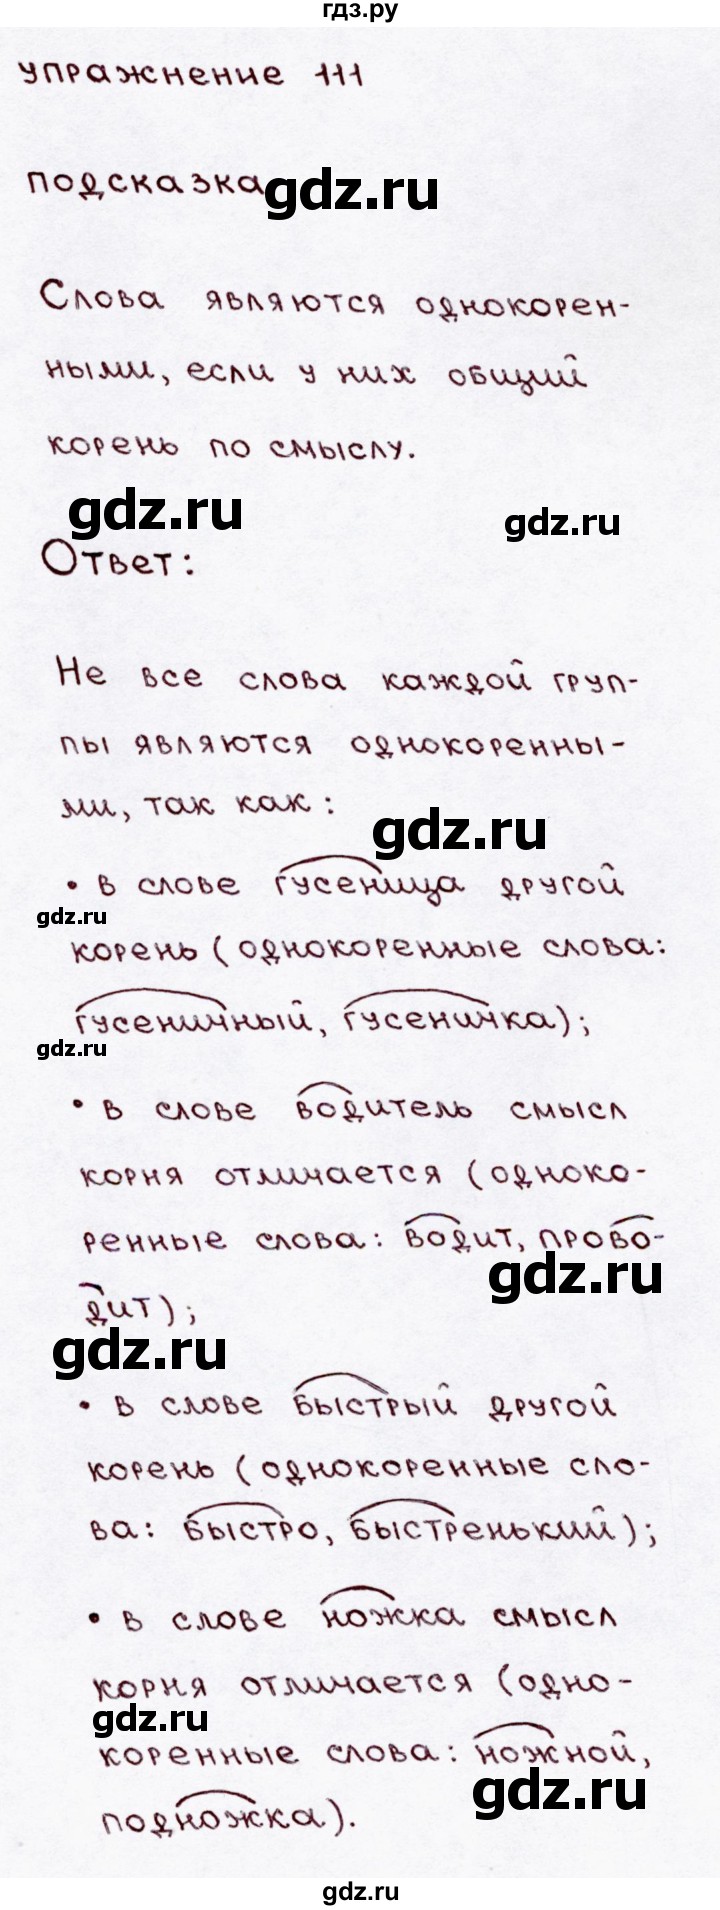 гдз.ру
упражнение 111
подсказка
gdz.ru
Слова являются однокорен-
ными, если у них общий
корень по смыслу.
gdz.ru
gdz.ru
Ответ:
Не все слова каждой груп-
пы являются однокоренны-
ми, так как:
gdz.ru
• в слове гусеница другой
gdz.ru
корень (однокоренные слова:
гусеничный, гусеничка);
gdz.ru
• в слове водитель смысл
корня отличается (одноко-
ренные слова: водит, прово-
gdz.ru
дит);
gdz.ru
• в слове быстрый другой
корень (однокоренные сло-
ва: быстро, быстренький);
• в слове ножка смысл
корня отличается (одно-
gdz.ru
коренные слова: ножной,
gdz.ru
подножка).
gdz.ru